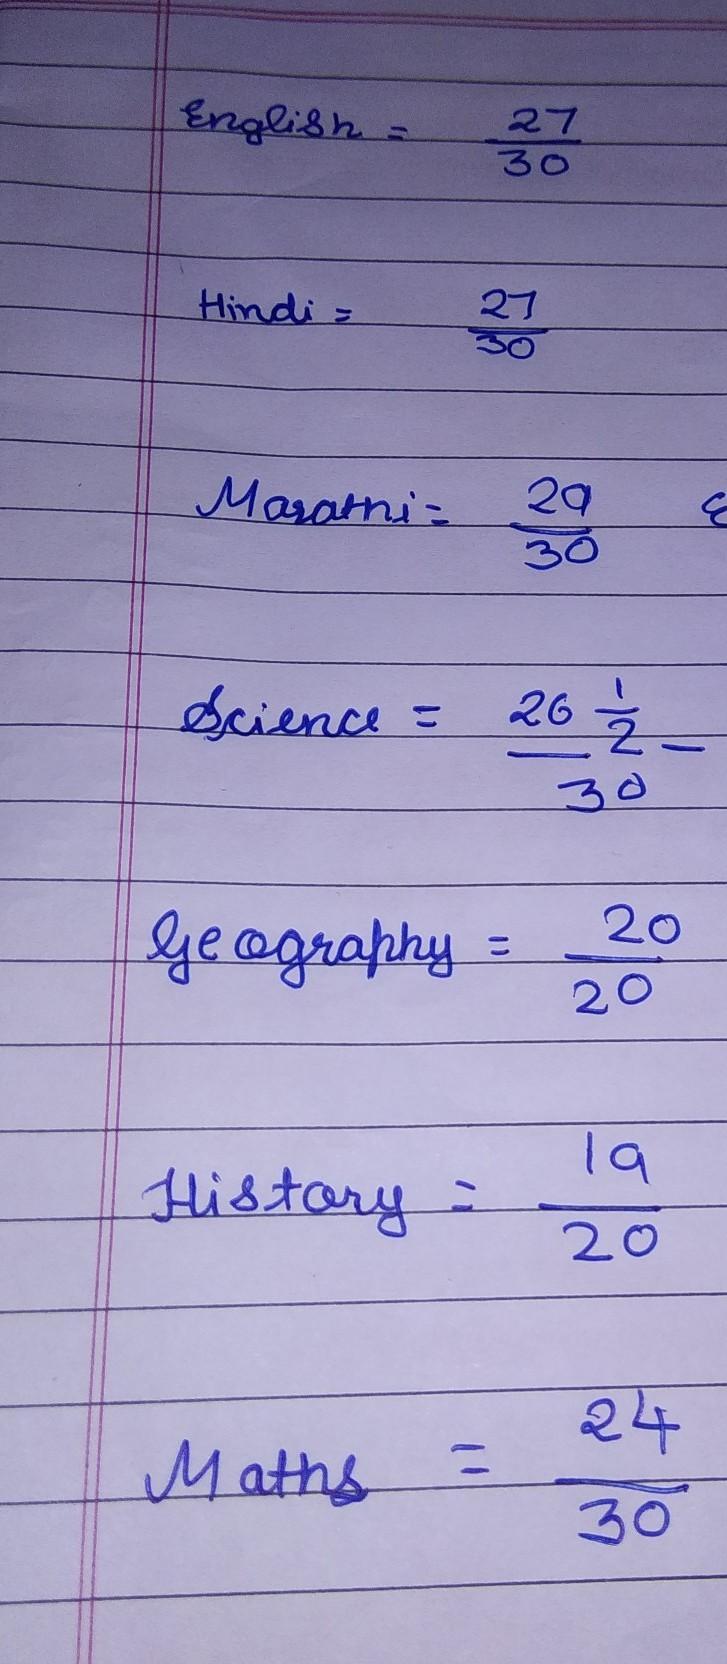 English = 27/30
Hindi = 27/30
Marathi = 29/30
Science = 26 1/2 / 30
Geography = 20/20
History = 19/20
Maths = 24/30